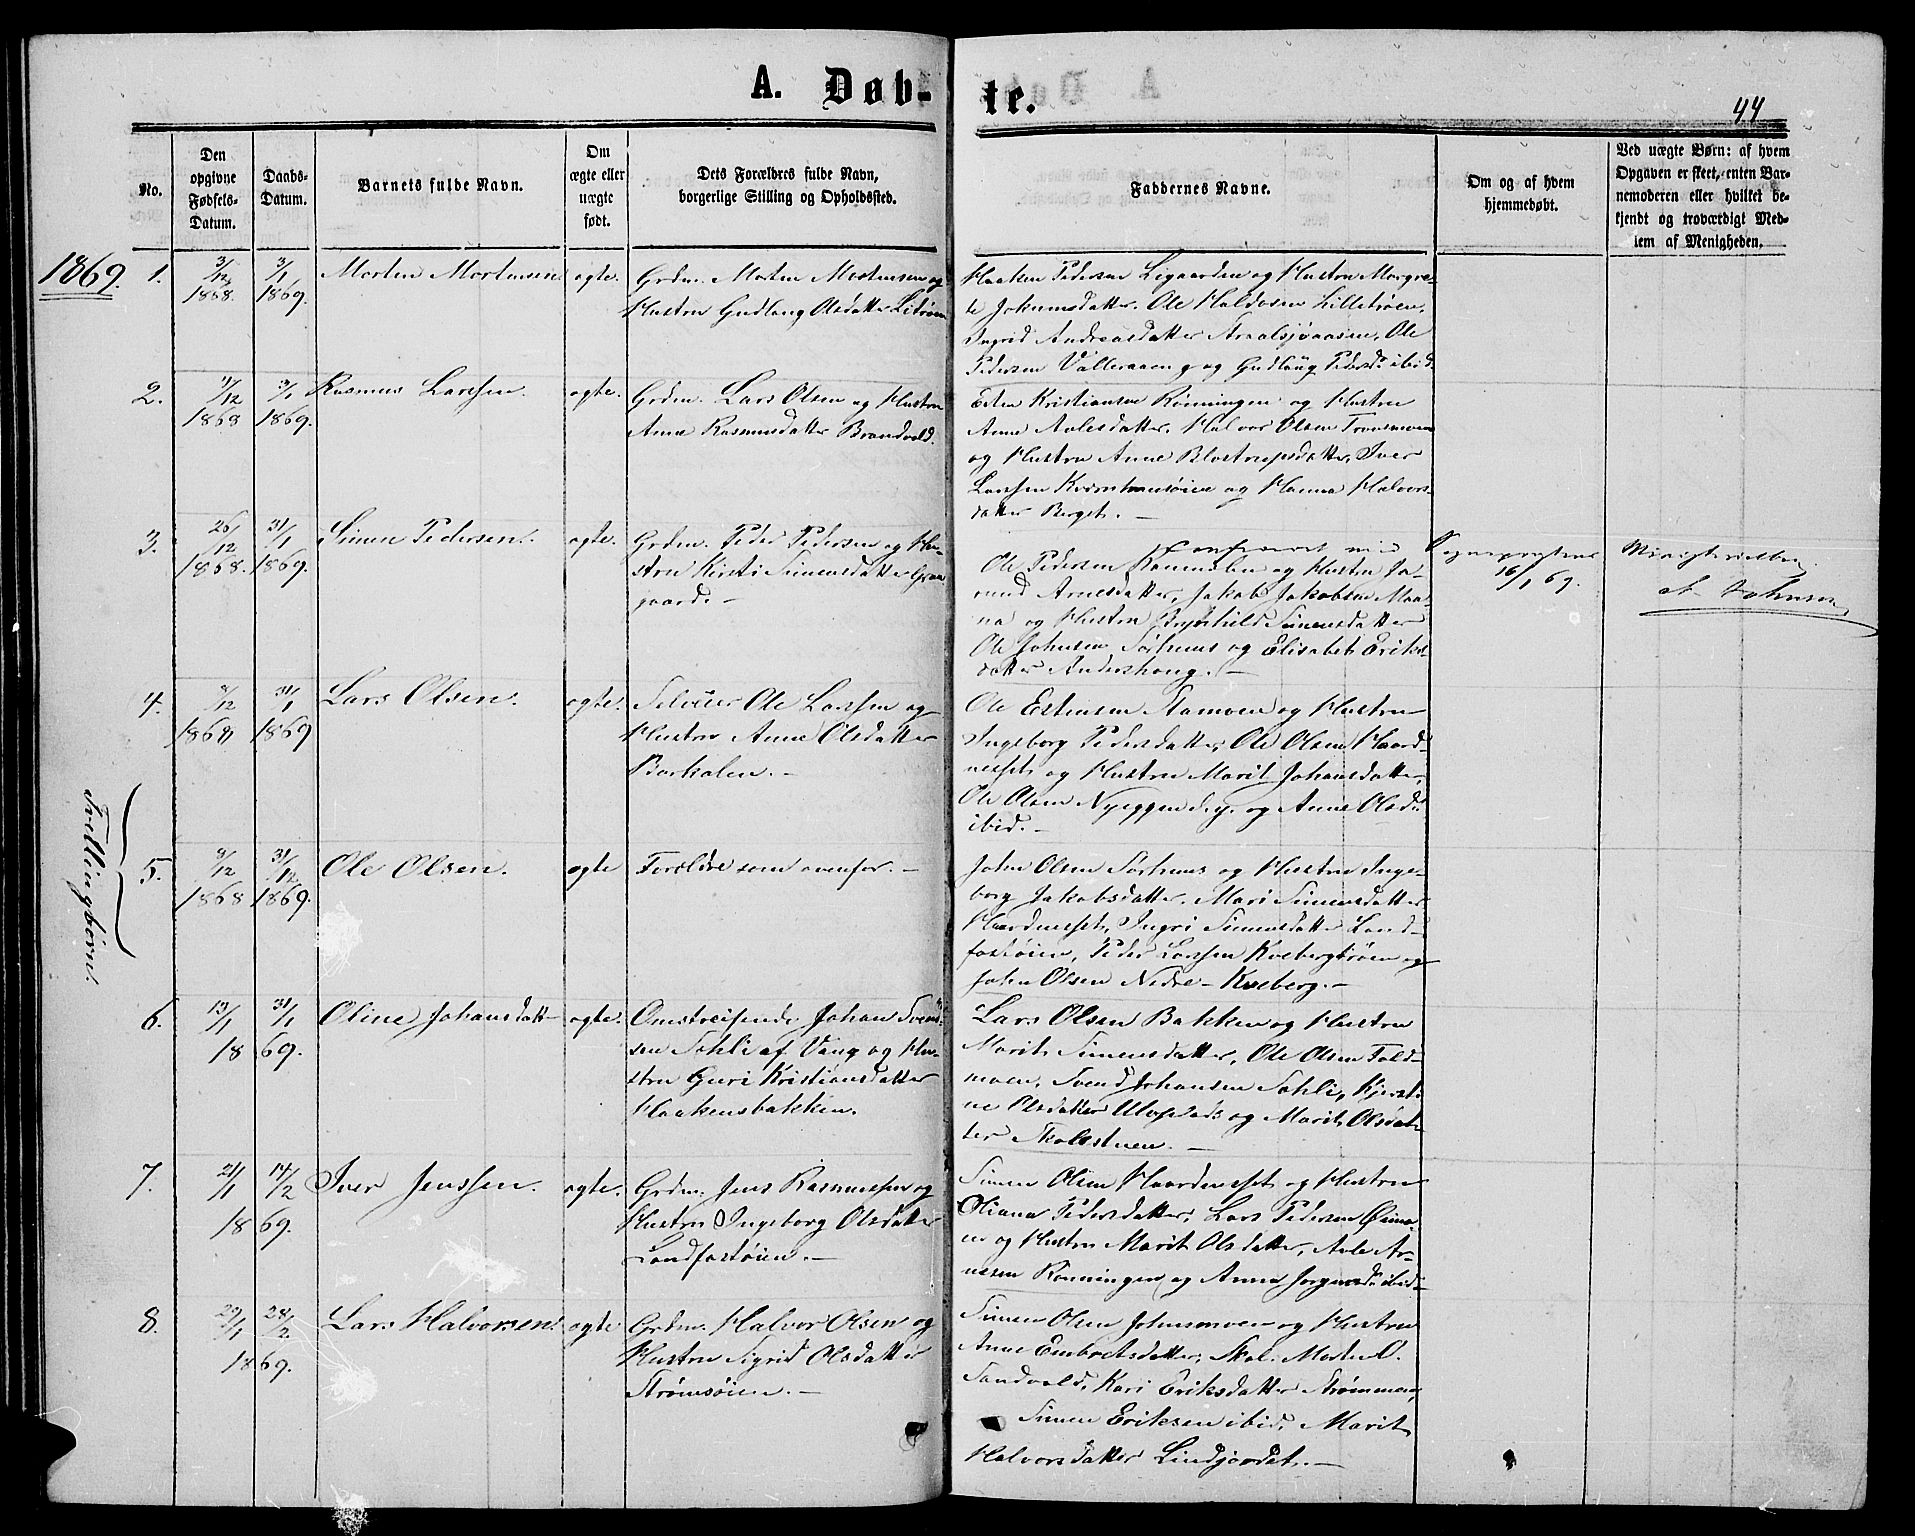 A. Døb-
te.
44
No.
Den
opgivne
Fødsels-
Datum.
Daabs-
Datum.
Barnets fulde Navn.
Om
ægte eller
uægte
født.
Dets Forældres fulde Navn,
borgerlige Stilling og Opholdssted.
Faddernes Navne.
Om og af hvem
hjemmedøbt.
Ved uægte Børn: af hvem
Opgaven er skeet, enten Bar-
nemoderen eller hvilket be-
kjendt og troværdigt Med-
lem af Menigheden.
1869.
1.
3/12
1868.
3/1
1869.
Morten Mortensen
ægte.
Grdm. Morten Mortensen og
Hustru Gudlaug Olsdatter
Haaken Pedersen Ligaarden og Hustru Margre-
te Jokumsdatter. Ole Haldosen Lilletrøen,
Ingrid Andreasdatter Ole
Pedersen og Gudlaug Pedersd. ibid.
2.
/12
1868
3/1
1869.
Rasmus Larssen.
ægte.
Grdm. Lars Olsen og Hustru
Anne Rasmusdatter Brandvold.
Esten Kristiansen Rønningen og Hustru
Anne Avlesdatter. Halvor Olsen
og Hustru Anne Iver
Larssen og Hanna Halvors-
datter Berget. —
3.
26/12
1868.
31/1
1869.
Simen Pedersen.
ægte.
Grdm. Peder Pedersen og Hu-
stru Kirsti Simensdatter
gaard. —
Konfereret med Sognepræstens Ministerialbog.
16/1 69.
Ole Pedersen og Hustru Jo-
rund Arnesdatter, Jakob Jakobsen Moa-
na og Hustru Brynhild Simensdatter
Ole Johnsen Sørhuus og Elisabet Eriks-
datter Andershaug. —
4.
8/12
1868
31/1
1869
Lars Olsen.
ægte.
Selveier Ole Larssen og
Hustru Anne Olsdatter
Barkalen. —
Ole Estensen Stamoen og Hustru
Ingeborg Pedersdatter, Ole Olsen Haard-
nesset og Hustru Marit Johansdatter,
Ole Olsen Nyeggen og Anne Olsd.
ibid. —
Tvillingbørn.
5.
8/12
1868
31/12
1869.
Ole Olsen.
ægte
Forældre som ovenfor. —
John Olsen Sørhuus og Hustru Inge-
borg Jakobsdatter. Mari Simensdatter
Haardnesset, Ingri Simensdatter Land-
fastøien, Peder Larssen Kvebergtrøen og
John Olsen Nedre-Kveberg. —
6.
13/1
31/1
18 69.
Oline Johansdatt-
ægte.
Omstreifende Johan Svend-
sen Sohli af Vang og Hu-
stru Guri Kristiansdatter
Haakensbakken.
Lars Olsen Bakken og Hustru
Marit Simensdatter, Ole Olsen Fold-
moen, Svend Johansen Sohli, Kjersti-
ne Olsdatter og Marit Olsdat-
ter Skolestuen. —
7.
21/1
14/2
18 69.
Iver Jenssen.
ægte.
Grdm. Jens Rasmussen og
Hustru Ingeborg Olsdatter
Landfastøien. —
Simen Olsen Haardnesset og Hustru
Oliana Pedersdatter, Lars Pedersen Øimo-
en og Hustru Marit Olsdatter, Avle Ar-
nesen Rønningen og Anne Jørgensd. ibid.
8.
29/1
28/2
1869.
Lars Halvorsen.
ægte
Grdm. Halvor Olsen og
Hustru Sigrid Olsdatter
Strømsøien. —
Simen Olsen Johnsmoen og Hustru
Anne Embretsdatter, Skol. Morten O.
Sandvold, Kari Eriksdatter Strømmen,
Simen Eriksen ibid, Marit
Halvorsdatter Lindjordet. —